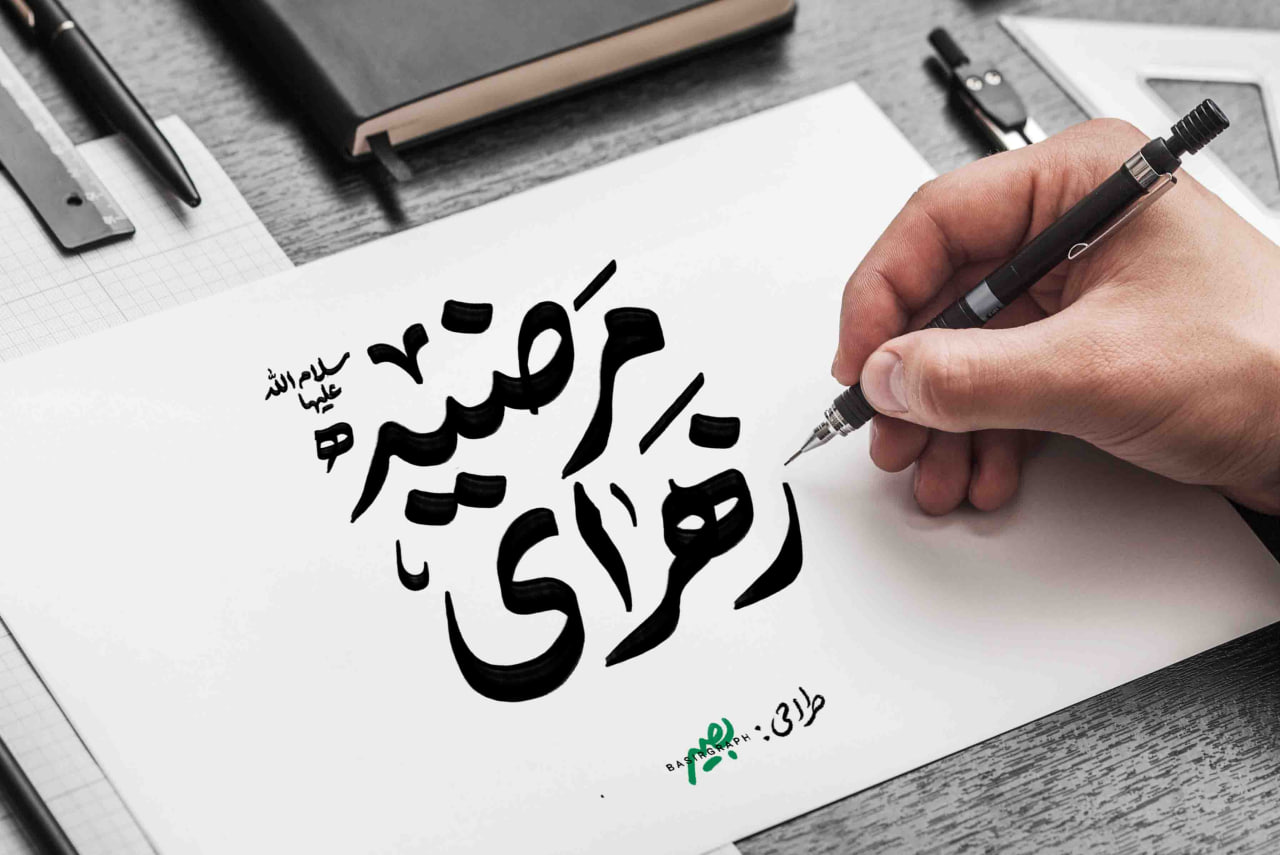 زهرای
مرضیه
سلام الله
علیها
طراحی: بصیر
BASIRGRAPH